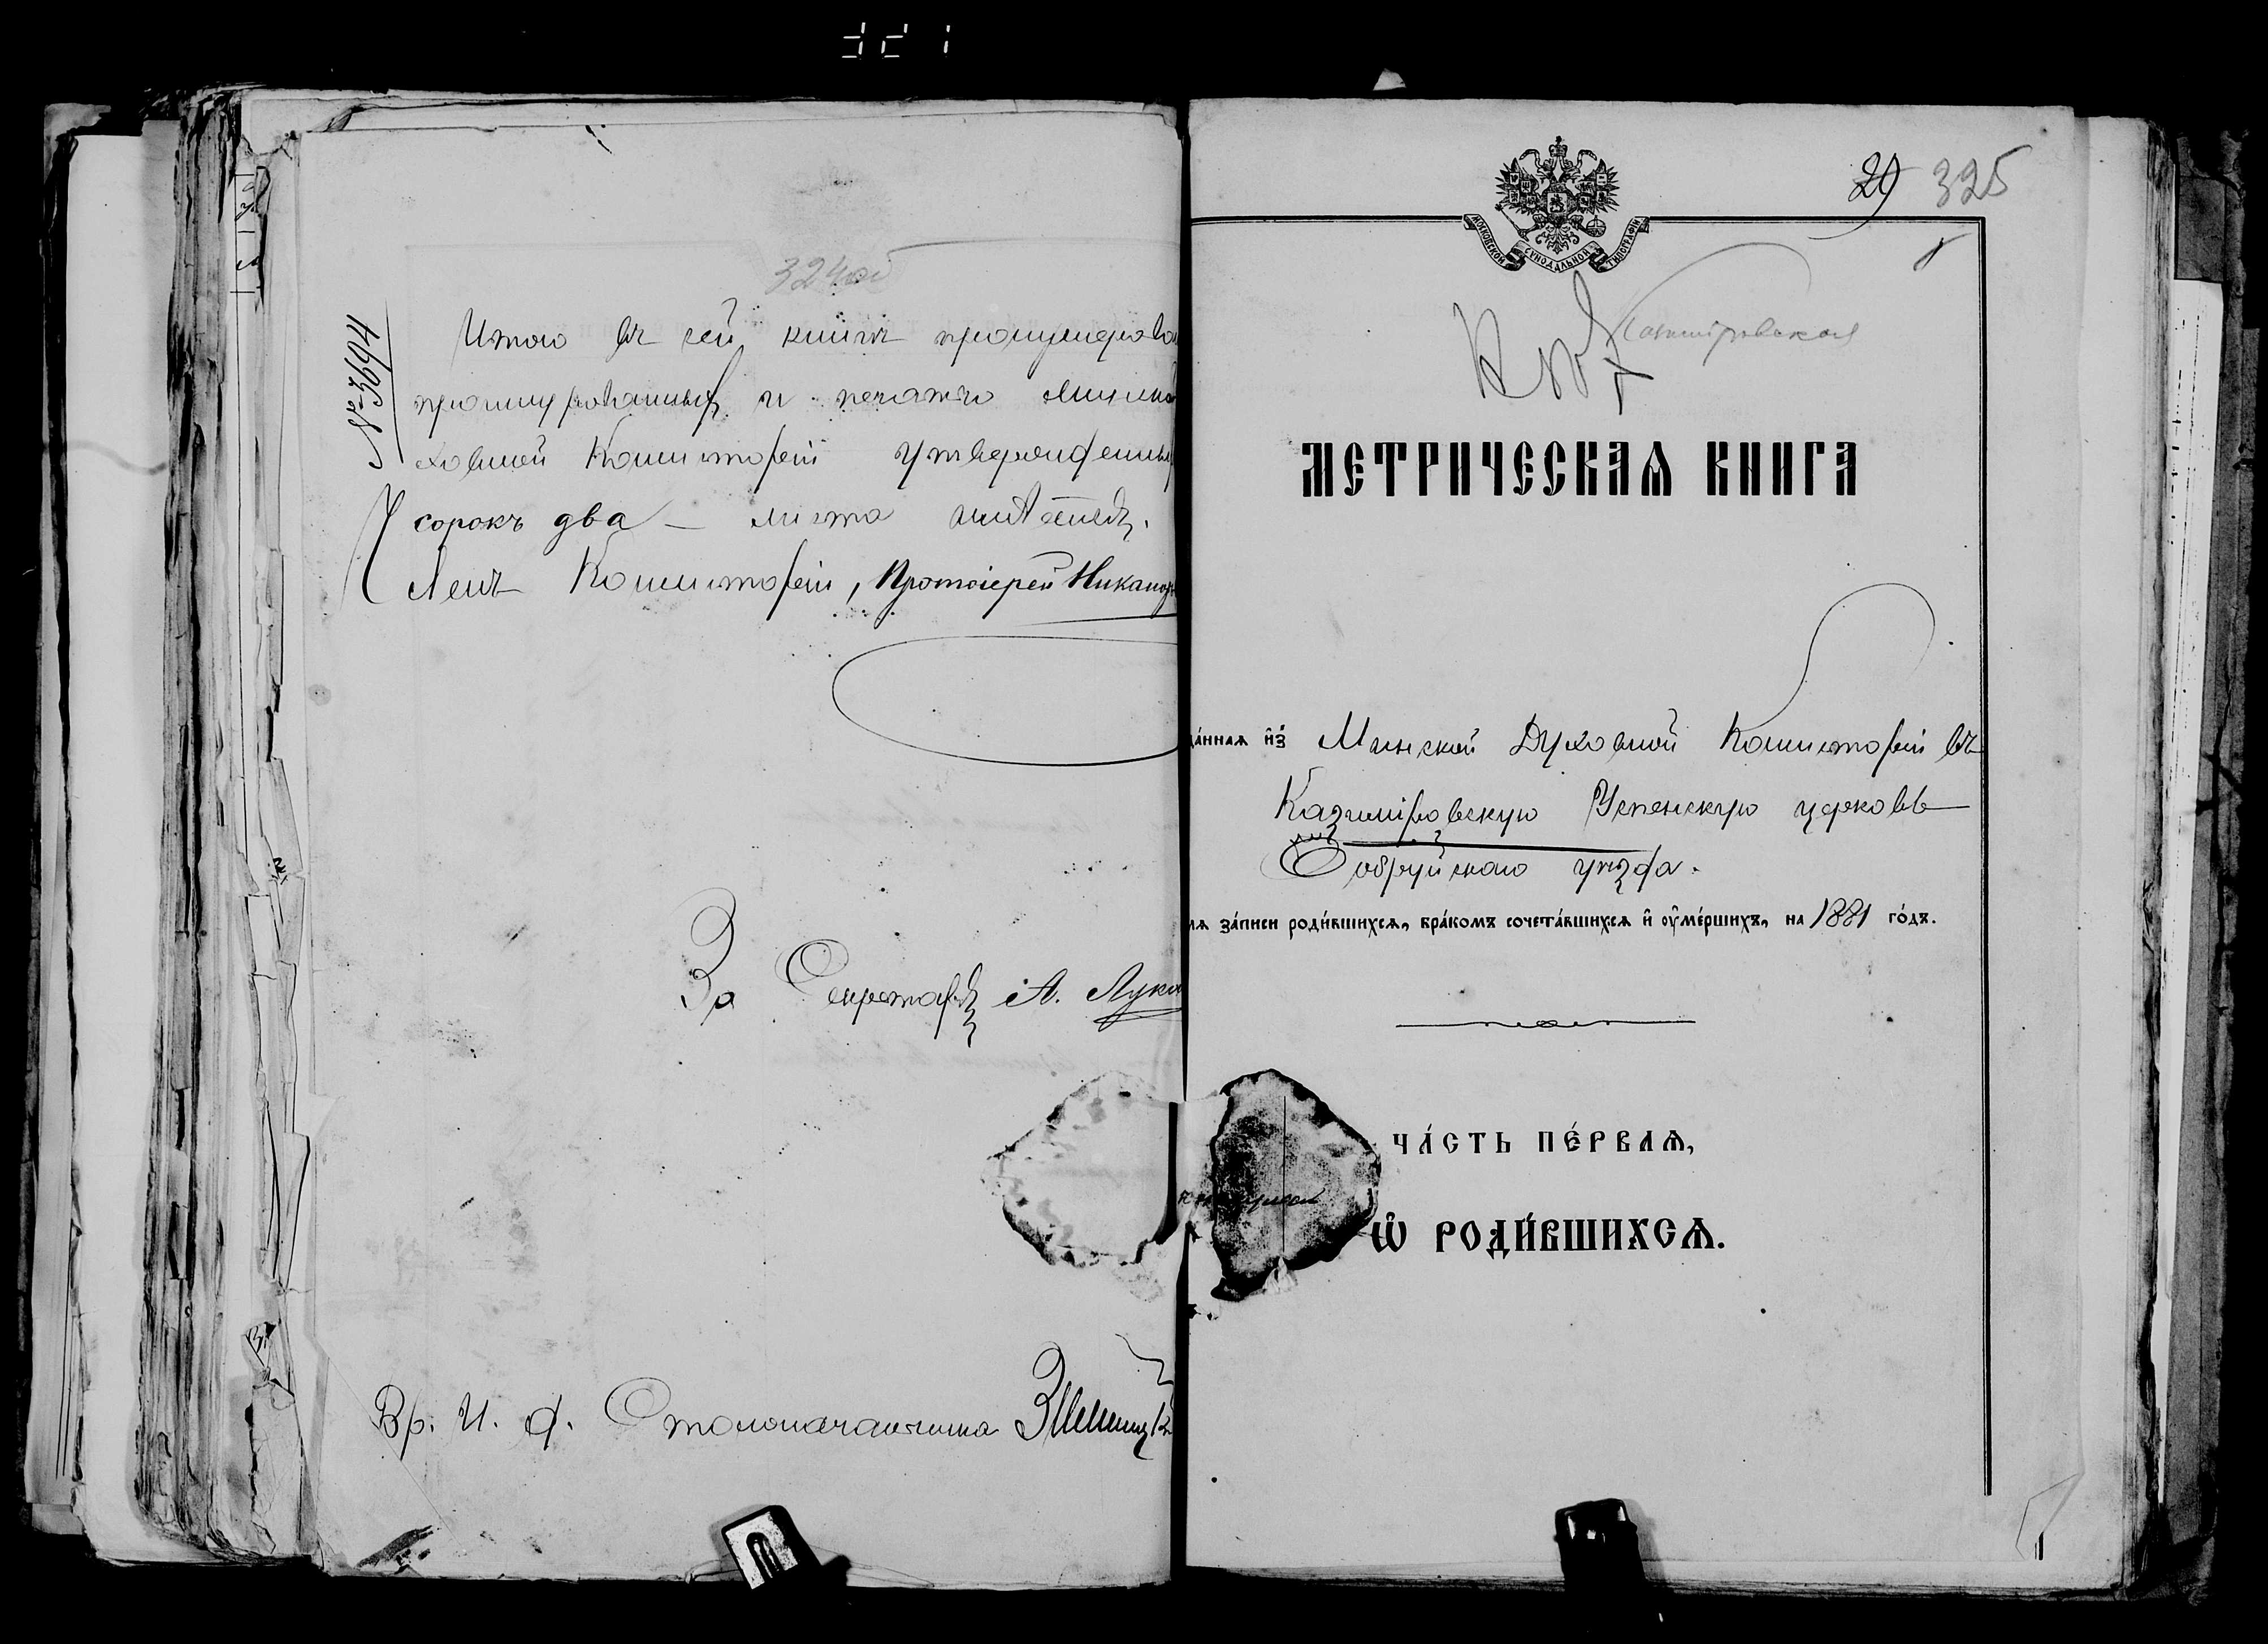 324об
№ 3694
Итого въ сей книгѣ пронумерова
прошнурованныхъ и печатью Минск
ховной Консисторіи утвержденны
сорокъ два — листа
Членъ Консисторіи, Протоіерей Никано
За Секретаря А. Лука
Вр. И. д. Столоначальника
29 325
МОСКОВСКОЙ СѴНОДАЛЬНОЙ ТИПОГРАФІИ
Казимировская
МЕТРИЧЕСКАѦ КНИГА
да́ннаѧ и҆з̾ Минской Духовной Консисторіи въ
Казимировскую Успенскую церковь
Бобруйскаго уѣзда.
лѧ за́писи роди́вшихсѧ, бра́комъ сочета́вшихсѧ и҆ ᲂу҆ме́ршихъ, на 1881 го́дъ.
ЧА́СТЬ ПЕ́РВАѦ,
Ѡ҆ РОДИ́ВШИХСѦ.